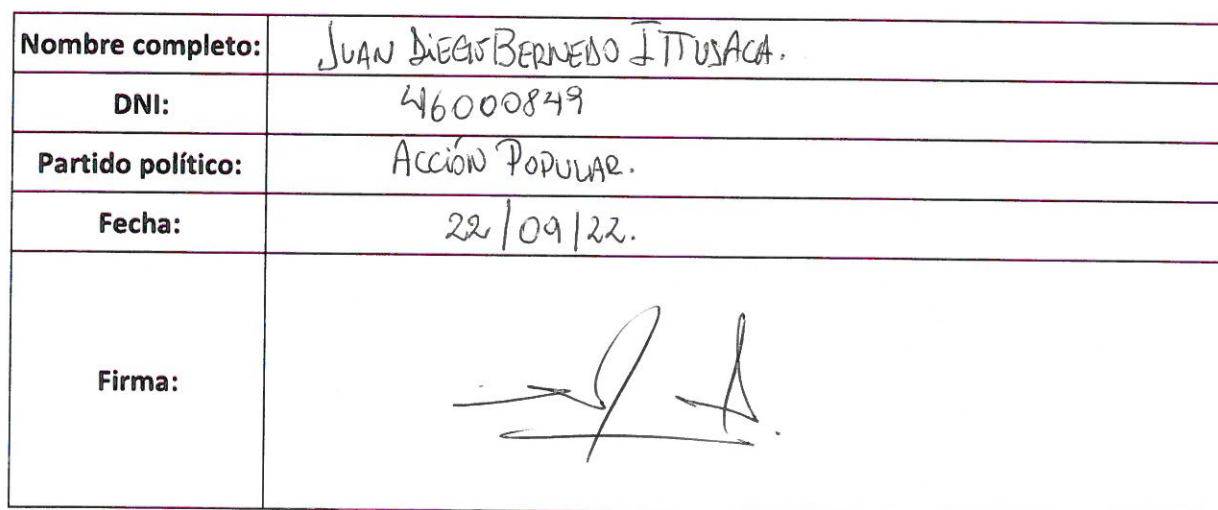 Nombre completo: JUAN DIEGO BERNEDO ITTUSACA.
DNI: 46000849
Partido político: ACCIÓN POPULAR.
Fecha: 22/09/22.
Firma: